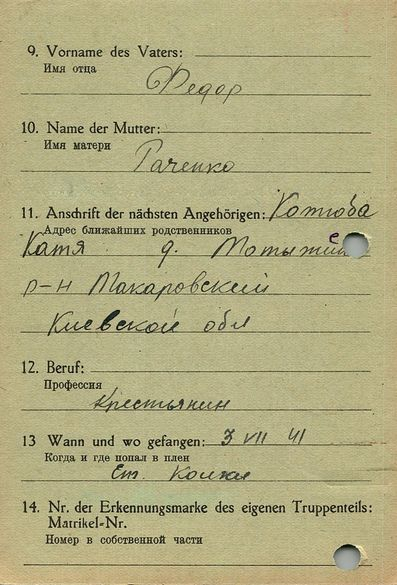 9. Vorname des Vaters:
Имя отца
Федор
10. Name der Mutter:
Имя матери
Раченко
11. Anschrift der nächsten Angehörigen: Котюба
Адрес ближайших родственников
Катя д.
р-н Макаровский
Киевской обл
12. Beruf:
Профессия
Крестьянин
13 Wann und wo gefangen: 3 VII 41
Когда и где попал в плен
Ст.
14. Nr. der Erkennungsmarke des eigenen Truppenteils:
Matrikel-Nr.
Номер в собственной части